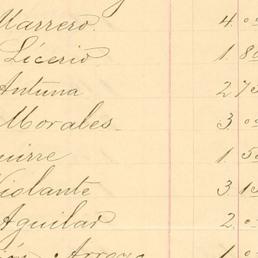 Marrero. 4.00
Licerio 1.80
Antuna 2.75
Morales 3.00
uirre 1.50
Violante 3.15
Aguilar 2.
Arroyo 1.0